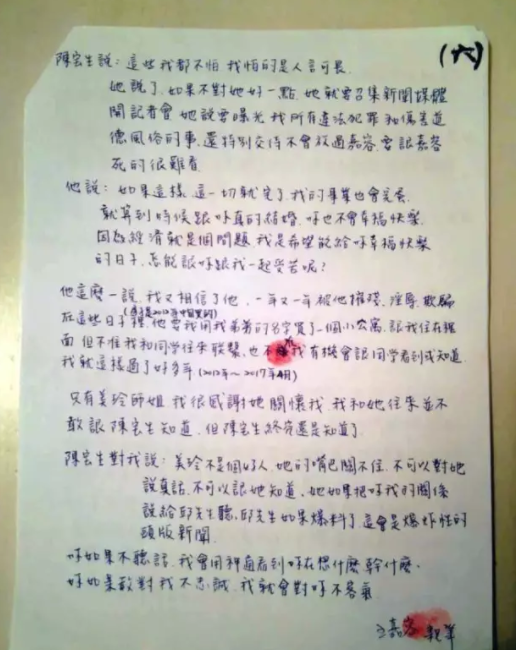 (六)
陳宏生說：這些我都不怕 我怕的是人言可畏.
她說了.如果不對她好一點.她就要召集新聞媒體
開記者會 她說要曝光我所有違法犯罪和傷害道
德風俗的事.還特別交待不會放過嘉容.要讓嘉容
死的很難看.
他說：如果這樣.這一切就完了.我的事業也會完蛋.
就算到時候跟妳真的結婚.妳也不會幸福快樂.
因為經濟就是個問題.我是希望能給妳幸福快樂
的日子.怎能讓妳跟我一起受苦呢？
他這麼一說.我又相信了他.一年又一年被他摧殘.淫辱.欺騙
在這些日子裡.他要我用我弟弟的名字買了一個小公寓.讓我住在裡
面 但不准我和同學往來聯繫.也不 我有機會讓同學看到或知道.
我就這樣過了好多年(2012年～2017年4月)
只有美玲師姐 我很感謝她關懷我 我和她往來並不
敢讓陳宏生知道.但陳宏生終究還是知道了.
陳宏生對我說：美玲不是個好人.她的嘴巴關不住.不可以對她
說真話.不可以讓她知道.她如果把妳我的關係
說給邱先生聽.邱先生如果爆料了.這會是爆炸性的
頭版新聞.
妳如果不聽話.我會用神通看到妳在想什麼幹什麼.
妳如果敢對我不忠誠.我就會對妳不客氣
王嘉容 親筆